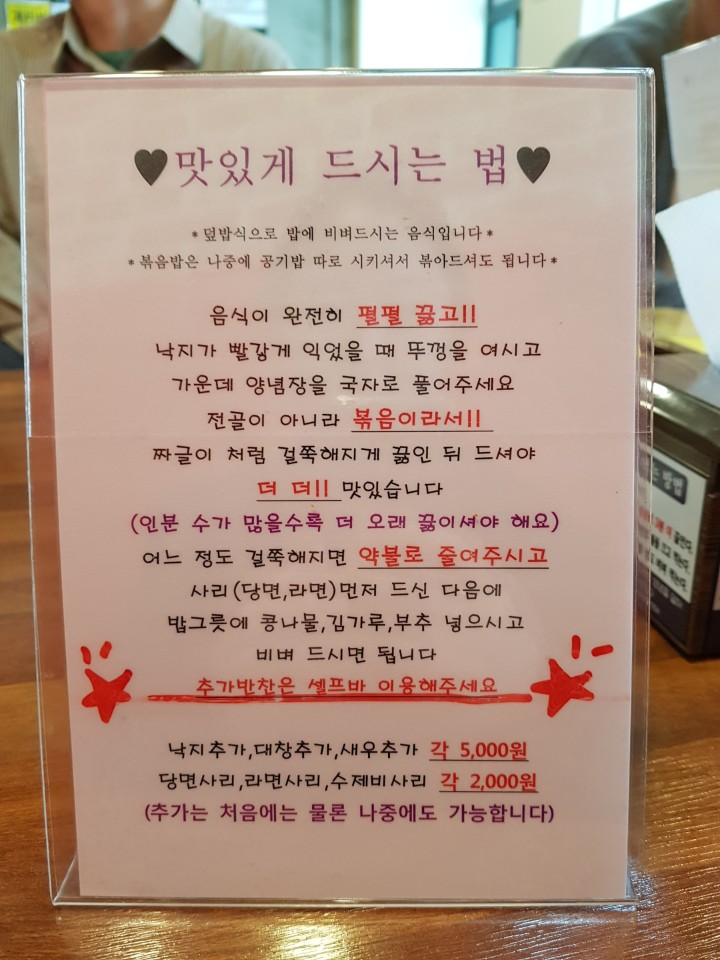 ♥맛있게 드시는 법♥
*덮밥식으로 밥에 비벼드시는 음식입니다*
*볶음밥은 나중에 공기밥 따로 시키셔서 볶아드셔도 됩니다*
음식이 완전히 펄펄 끓고!!
낙지가 빨갛게 익었을 때 뚜껑을 여시고
가운데 양념장을 국자로 풀어주세요
전골이 아니라 볶음이라서!!
짜글이 처럼 걸쭉해지게 끓인 뒤 드셔야
더 더!! 맛있습니다
(인분 수가 많을수록 더 오래 끓이셔야 해요)
어느 정도 걸쭉해지면 약불로 줄여주시고
사리(당면,라면)먼저 드신 다음에
밥그릇에 콩나물,김가루,부추 넣으시고
비벼 드시면 됩니다
추가반찬은 셀프바 이용해주세요
낙지추가,대창추가,새우추가 각 5,000원
당면사리,라면사리,수제비사리 각 2,000원
(추가는 처음에는 물론 나중에도 가능합니다)
방법